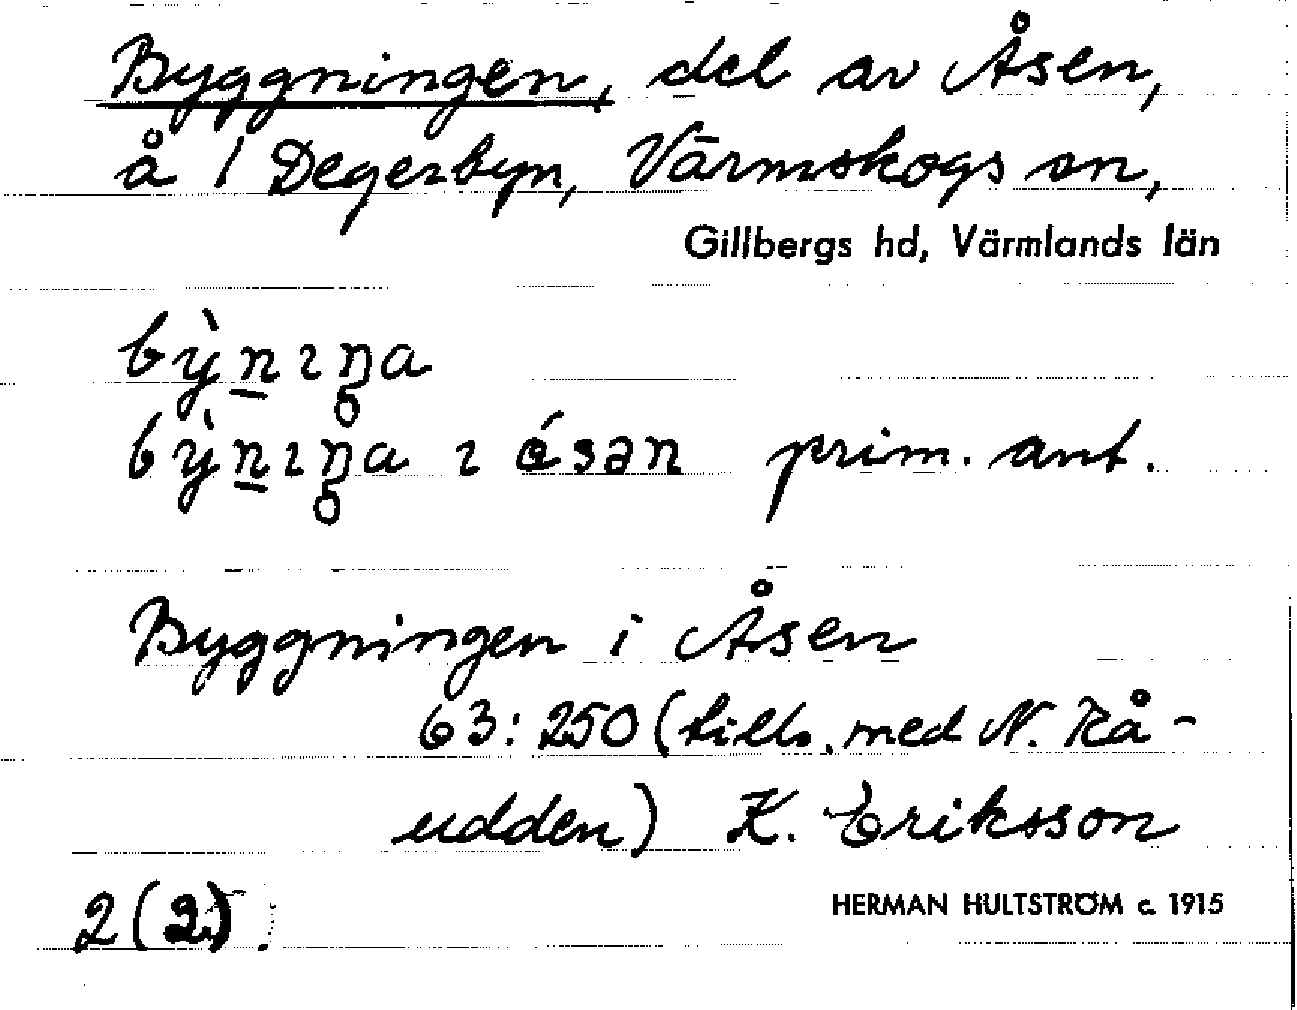 Byggningen, del av Åsen,
å 1 Degerbyn, Värmskogs sn,
Gillbergs hd, Värmlands län
bỳn̲ıŋ̥a
bỳn̲ıŋ̥a ı ósən prim. ant.
Byggningen i Åsen
63:250 (tills. med N. Rå-
udden) K. Eriksson
2 (2).
HERMAN HULTSTRÖM c. 1915